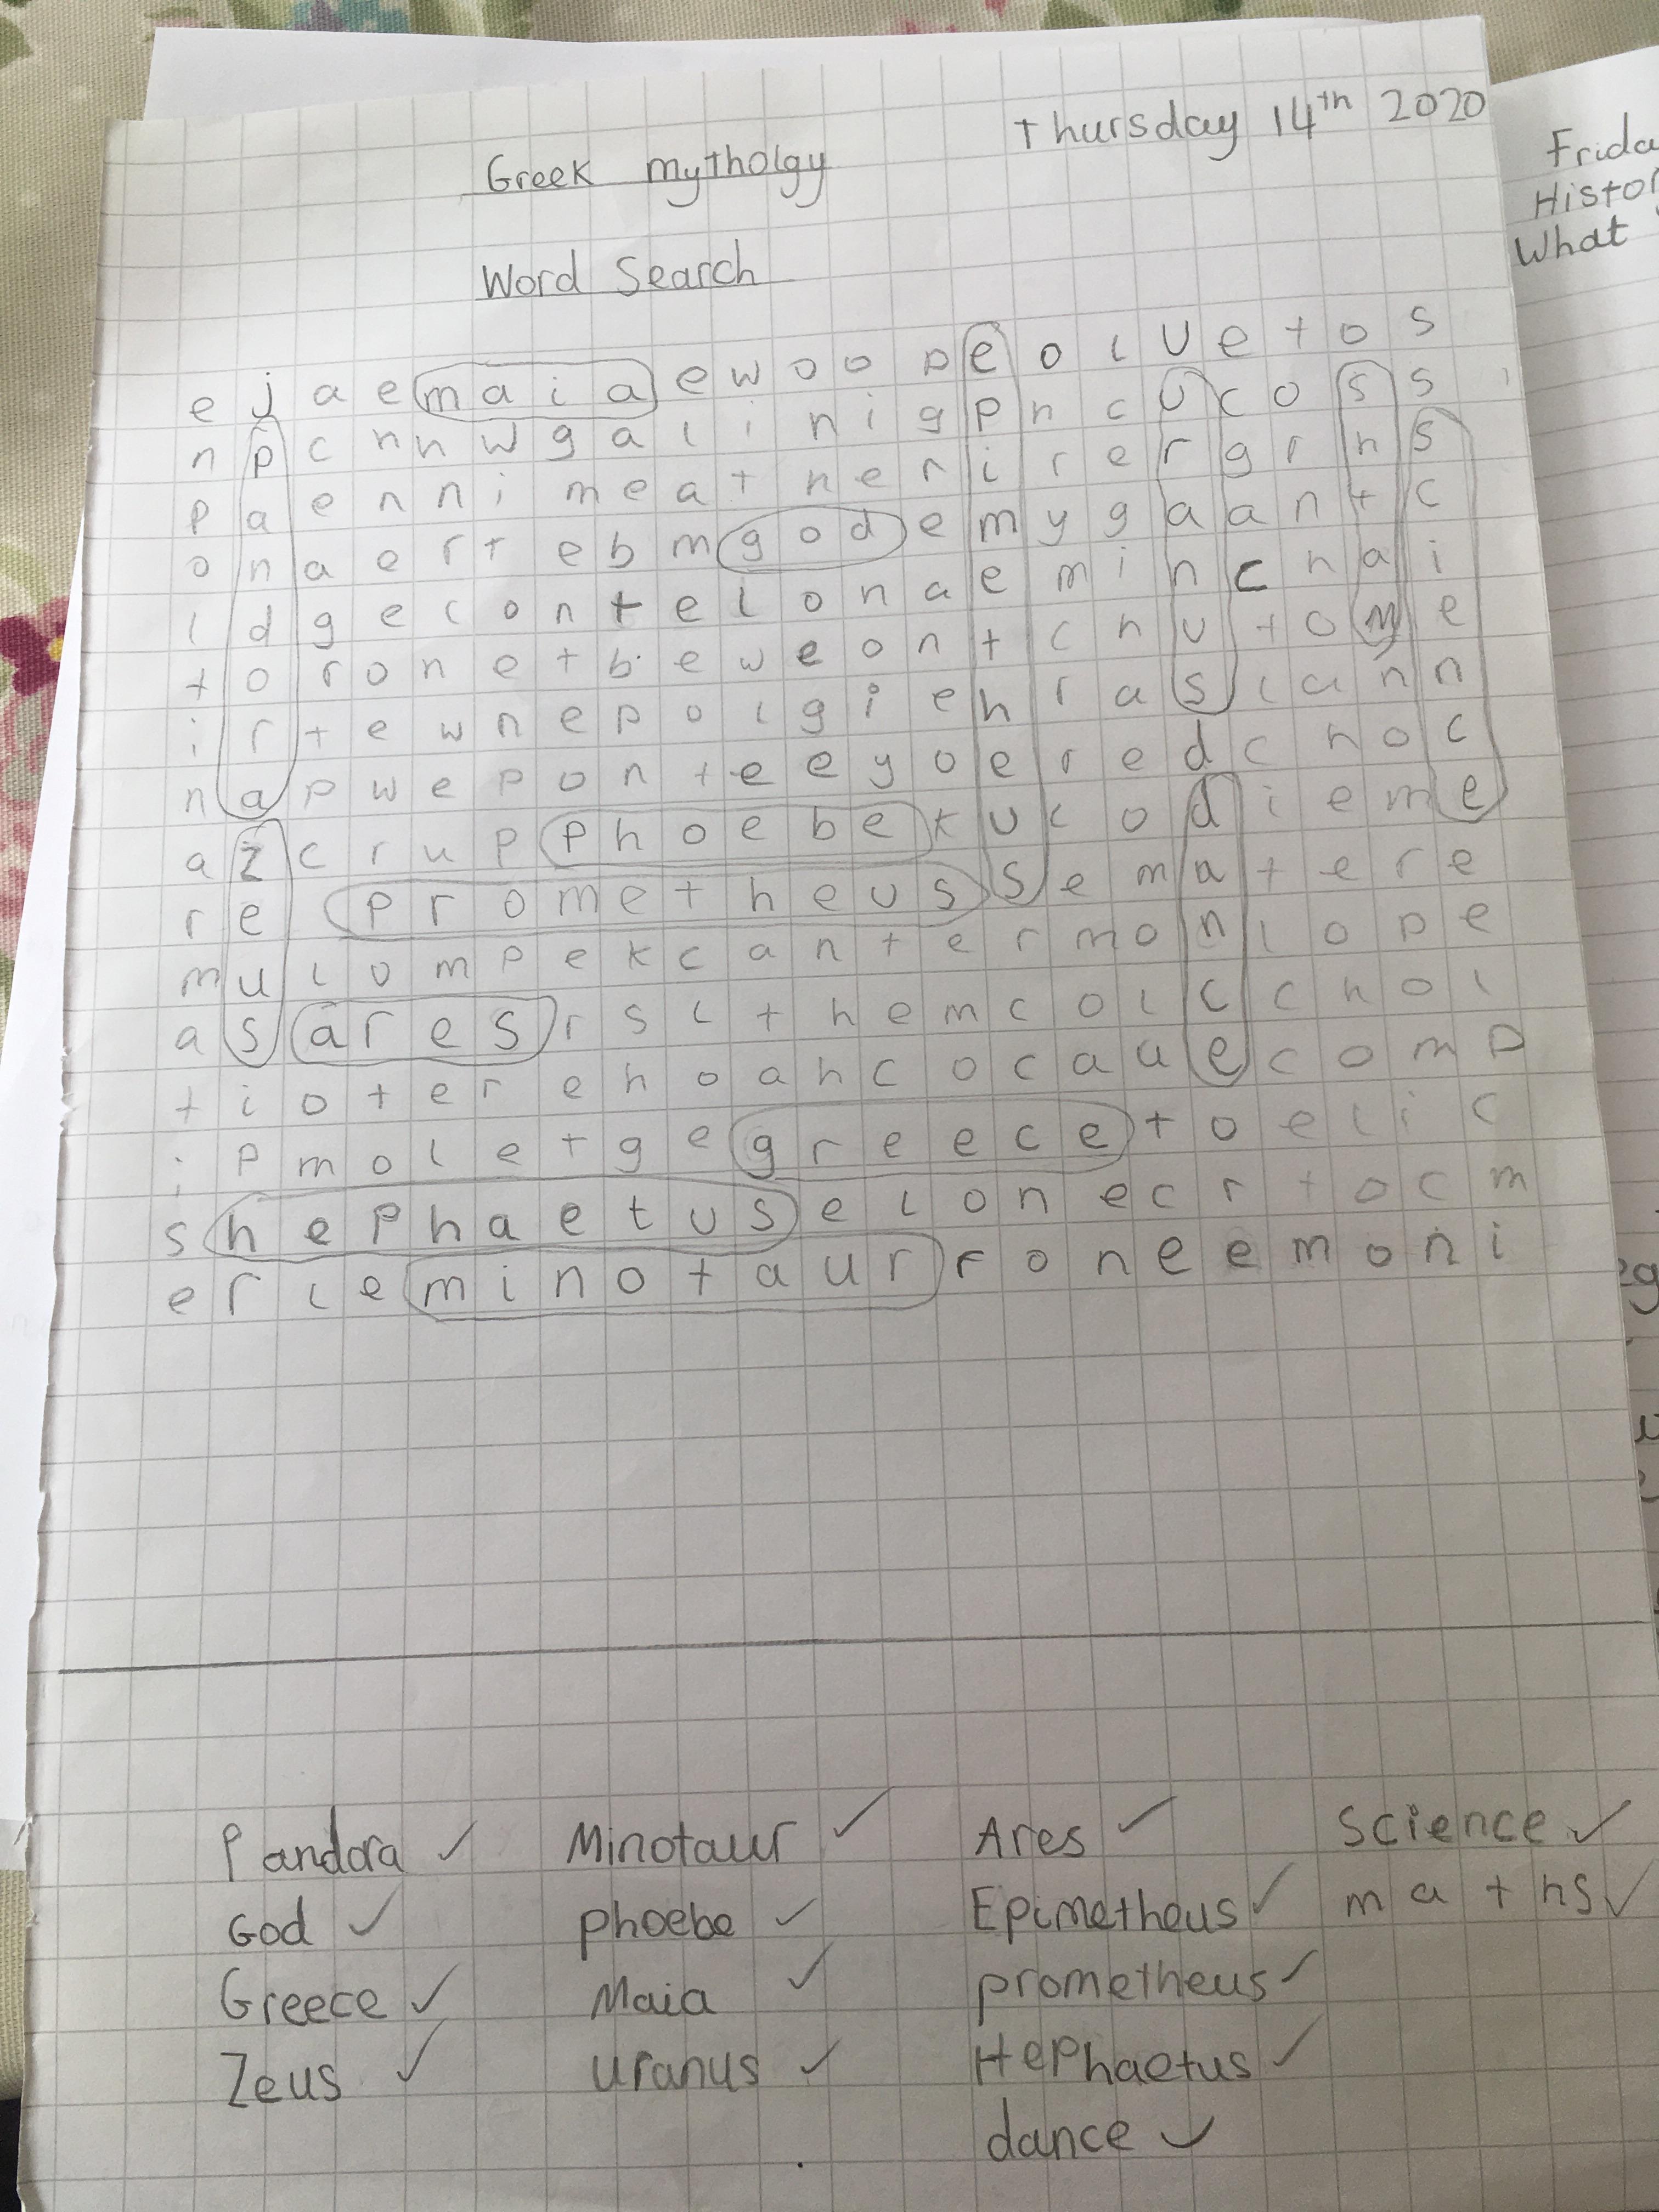 Thursday 14th 2020
Greek mytholgy
Word Search
Frida
Histor
What
e j a e m a i a e w o o p e o l u e t o s
n p c n n w g a l i n i g p n c u c o s s
p a e n n i m e a t n e r i r e r g r h s
o n a e r t e b m g o d e m y g a a n t c
l d g e c o n t e l o n a e m i n c h a i
t o r o n e t b e w e o n t c h u t o m e
i r t e w n e p o l g i e h r a s l a n n
n a p w e p o n t e e y o e r e d c h o c
a z c r u p p h o e b e k u c o d i e m e
r e p r o m e t h e u s s e m a t e r e
m u l o m p e k c a n t e r m o n l o p e
a s a r e s r s l t h e m c o l c c h o l
t i o t e r e h o a h c o c a u e c o m p
i p m o l e t g e g r e e c e t o e l i c
s h e p h a e t u s e l o n e c r t o c m
e r l e m i n o t a u r r o n e e m o n i
Pandora ✓ Minotaur ✓ Ares ✓ Science ✓
God ✓ phoebe ✓ Epimetheus ✓ maths ✓
Greece ✓ Maia ✓ prometheus ✓
Zeus ✓ uranus ✓ Hephaetus ✓
dance ✓